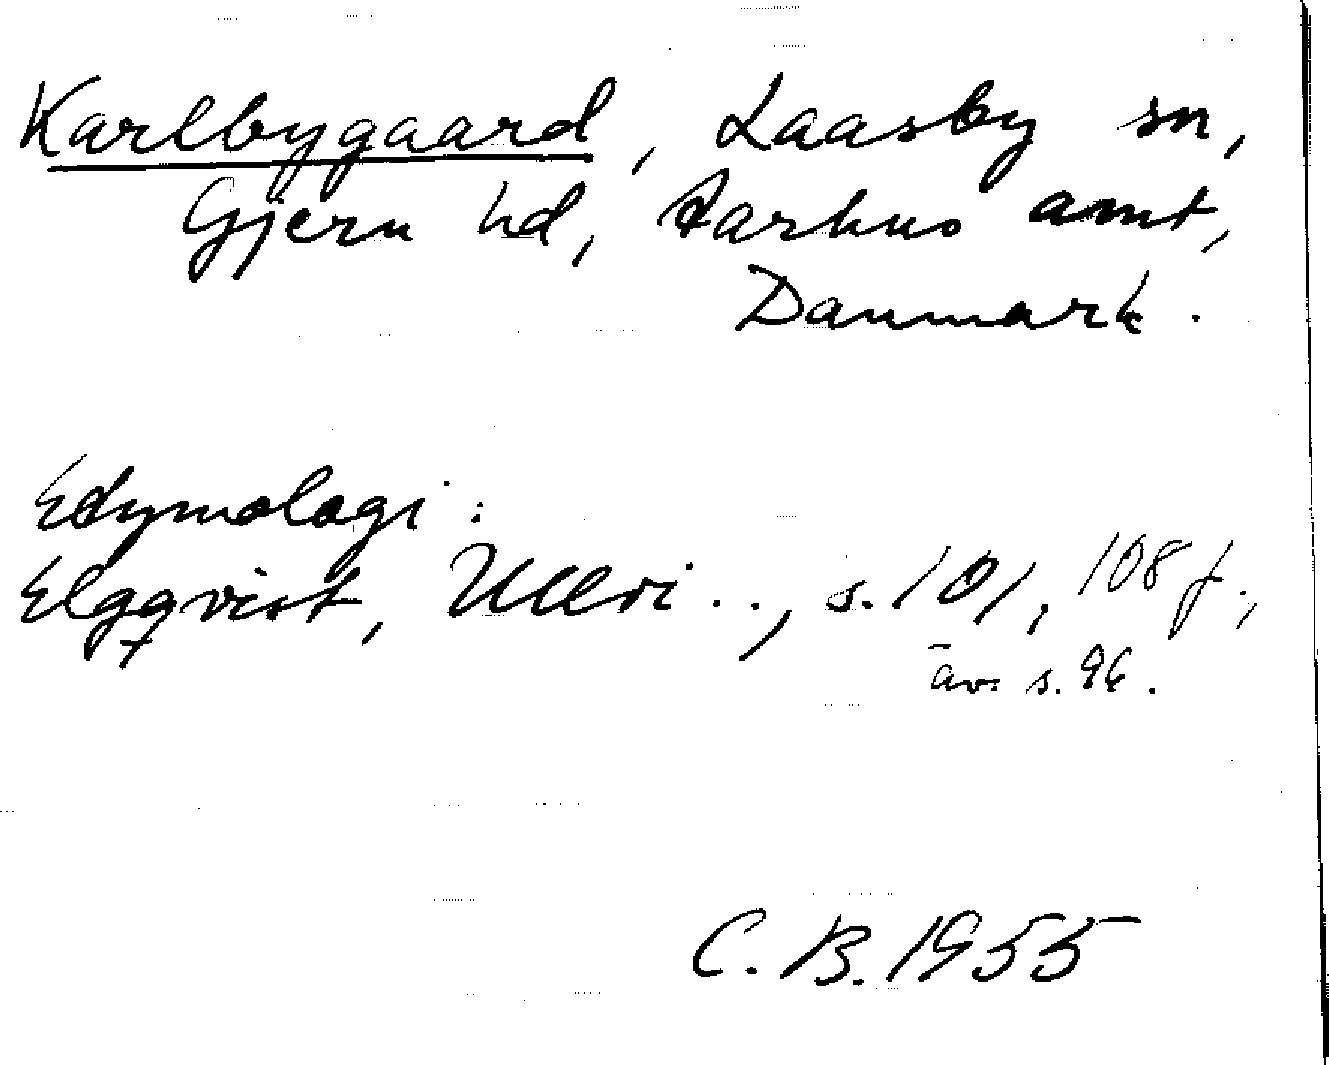 Karlbygaard, Laasby sn,
Gjern hd, Aarhus amt,
Danmark.
Etymologi:
Elgqvist, Ullvi..., s. 101, 108 f.,
äv. s. 96.
C.B. 1955